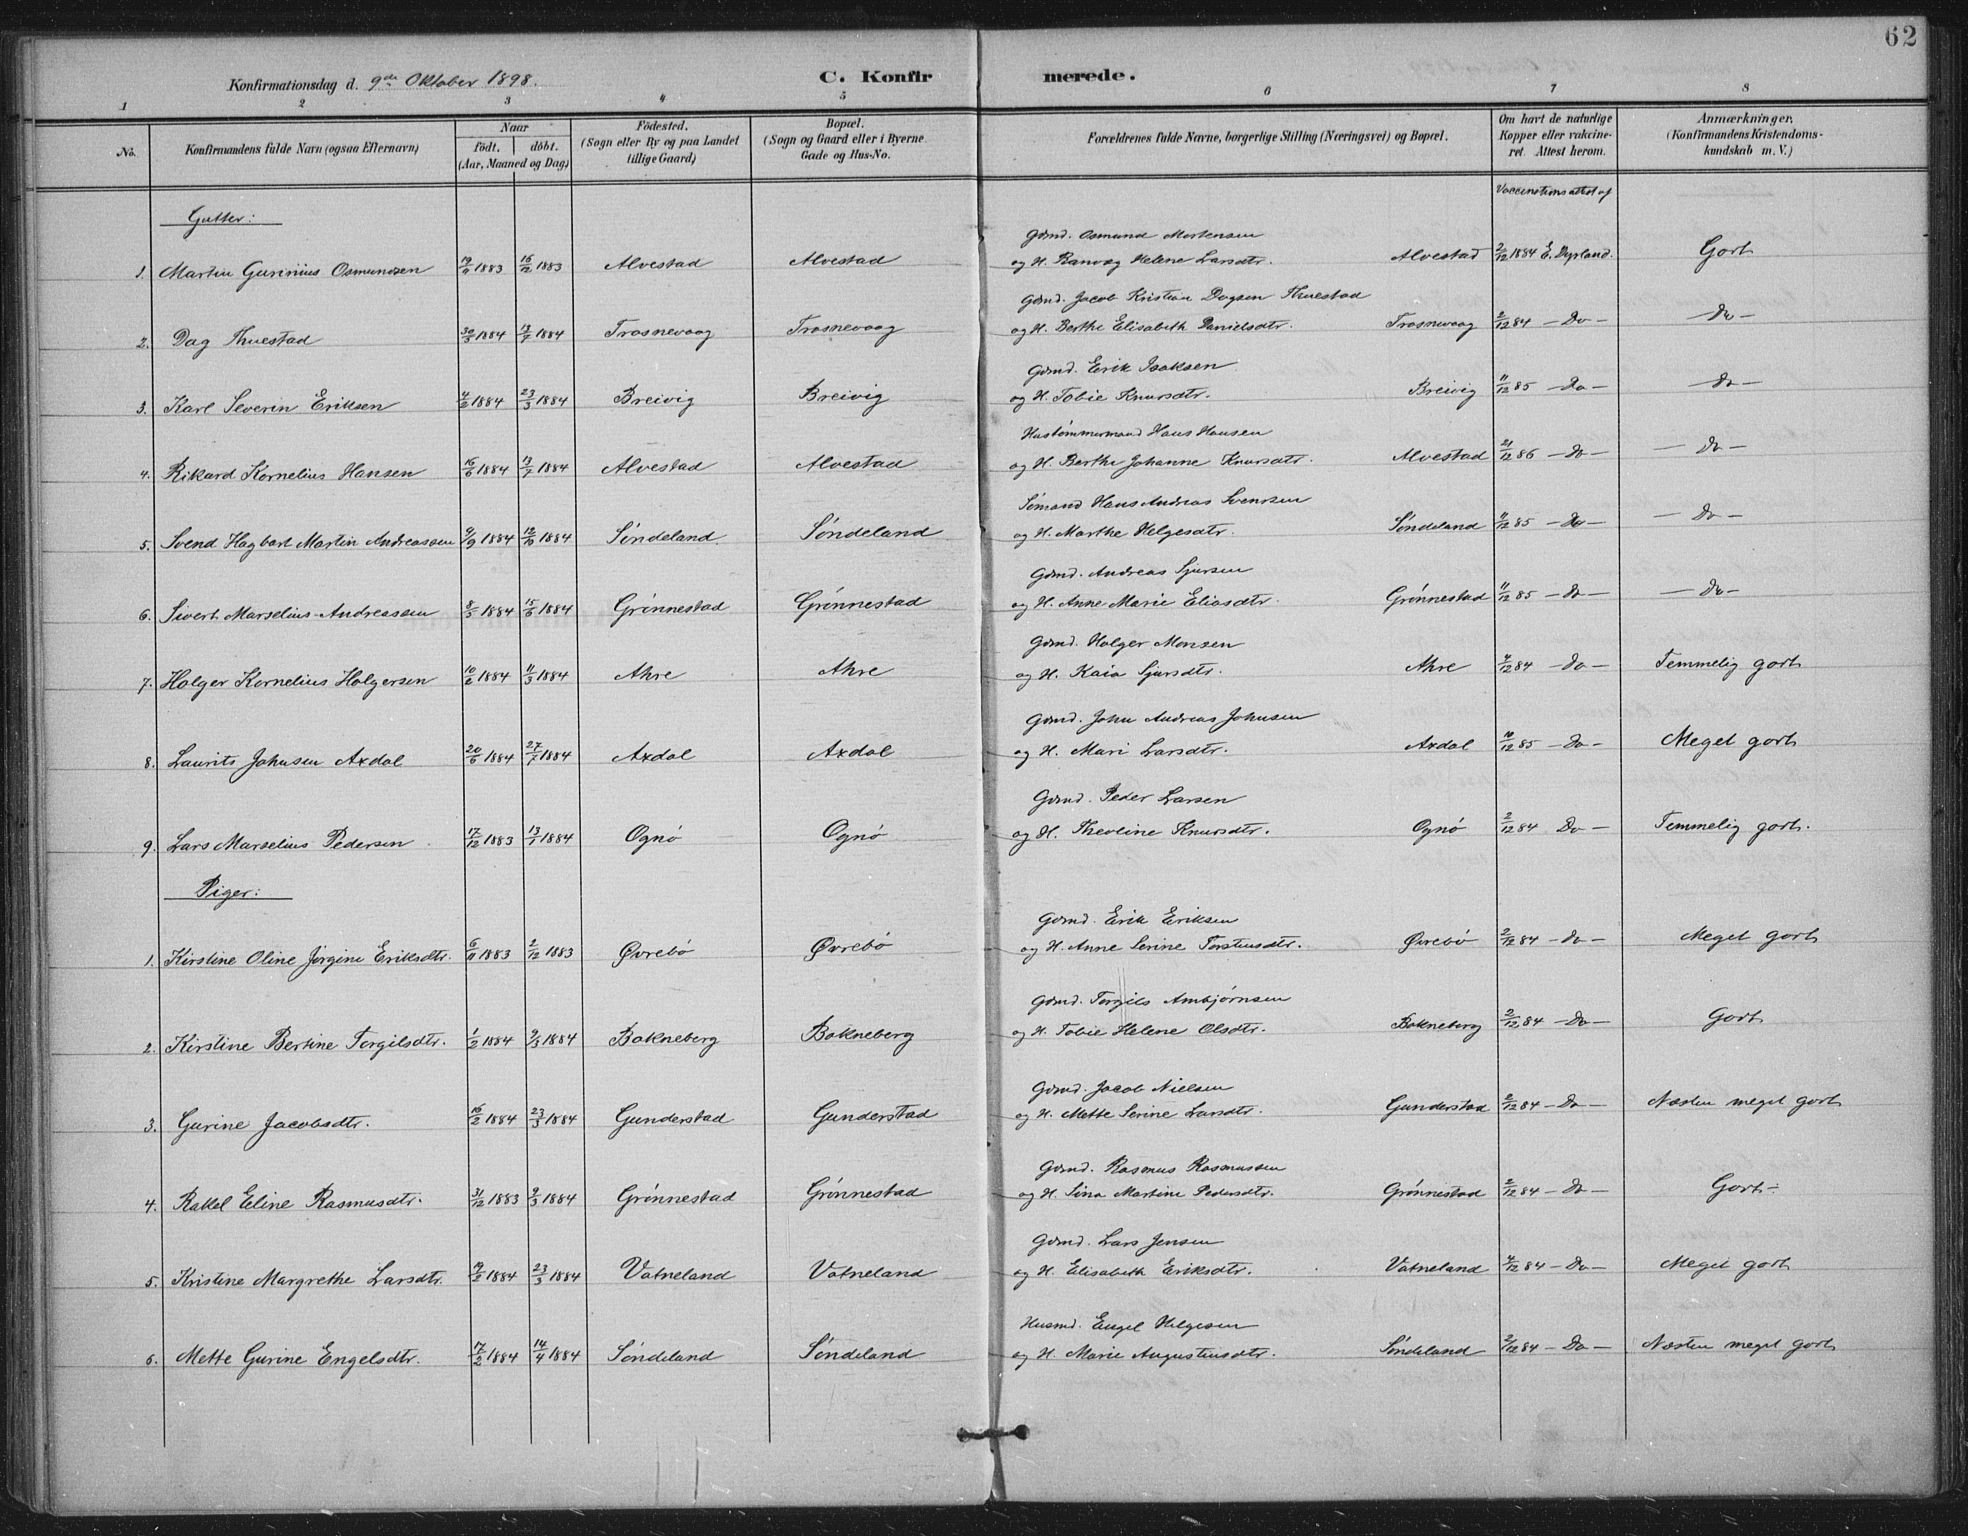 62
Konfirmationsdag d. 9de Oktober 1898.
C. Konfirmerede.
1 2 3 4 5 6 7 8
No.
Konfirmandens fulde Navn (ogsaa Efternavn)
Naar
født. døbt.
(Aar, Maaned og Dag)
Födested.
(Sogn eller By og paa Landet
tillige Gaard)
Bopæl.
(Sogn og Gaard eller i Byerne
Gade og Hus-No.
Forældrenes fulde Navne, borgerlige Stilling (Næringsvei) og Bopæl.
Om havt de naturlige
Kopper eller vakcine-
ret. Attest herom.
Anmærkninger,
(Konfirmandens Kristendoms-
kundskab m. V.)
Vaccinationsattest af
Gutter:
Gdmd. Osmund Mortensen
1. Martin Gurinius Osmundsen 19/11 1883 16/12 1883 Alvestad Alvestad og H. Ranvæg Helene Larsdtr. Alvestad 2/12 1884 E. Dyrland. Godt
Gdmd. Jacob Kristian Dagsen Thuestad
2. Dag Thuestad 30/5 1884 13/7 1884 Trosnevaag Trosnevaag og H. Berthe Elisabeth Danielsdtr. Trosnevaag 2/12 84 – Do – – Do –
Gdmd. Erik Isaksen
3. Karl Severin Eriksen 4/2 1884 23/3 1884 Breivig Breivig og H. Tobie Knudsdtr. Breivig 11/12 85 – Do – – Do –
Hustømmermand Hans Hansen
4. Rikard Kornelius Hansen 16/6 1884 13/7 1884 Alvestad Alvestad og H. Berthe Johanne Knudsdtr. Alvestad 21/12 86 – Do – – Do –
Sømand Hans Andreas Svendsen
5. Svend Hagbart Martin Andreassen 9/9 1884 12/10 1884 Søndeland Søndeland og H. Marthe Helgesdtr. Søndeland 11/12 85 – Do – – Do –
Gdmd. Andreas Sjursen
6. Sivert Marselius Andreassen 8/5 1884 15/6 1884 Grønnestad Grønnestad og H. Anne Marie Eliasdtr. Grønnestad 11/12 85 – Do – – Do –
Gdmd. Holger Monsen
7. Holger Kornelius Holgersen 10/2 1884 11/3 1884 Ahre Ahre og H. Kaia Sjursdtr. Ahre 4/12 84 – Do – Temmelig godt
Gdmd. John Andreas Johnsen
8. Laurits Johnsen Axdal 20/6 1884 27/7 1884 Axdal Axdal og H. Mari Larsdtr. Axdal 10/12 85 – Do – Meget godt
Gdmd. Peder Larsen
9. Lars Marselius Pedersen 17/12 1883 13/1 1884 Ognø Ognø og H. Theoline Knudsdtr. Ognø 2/12 84 Do – Temmelig godt.
Piger:
Gdmd. Erik Eriksen
1. Kirstine Oline Jørgine Eriksdtr. 6/11 1883 2/12 1883 Øvrebø Øvrebø og H. Anne Serine Torstensdtr. Øvrebø 2/12 84 – Do – Meget godt
Gdmd. Torgils Ambjørnsen
2. Kirstine Bertine Torgilsdtr. 1/2 1884 9/3 1884 Bokneberg Bokneberg og H. Tobie Helene Olsdtr. Bokneberg 2/12 84 – Do – Godt
Gdmd. Jacob Nielsen
3. Gurine Jacobsdtr. 16/2 1884 23/3 1884 Gunderstad Gunderstad og H. Mette Serine Larsdtr. Gunderstad 2/12 84 – Do Næsten meget godt
Gdmd. Rasmus Rasmussen
4. Rakel Eline Rasmusdtr. 31/12 1883 9/3 1884 Grønnestad Grønnestad og H. Sina Martine Pedersdtr. Grønnestad 2/12 84 – Do – Godt
Gdmd. Lars Jensen
5. Kristine Margrethe Larsdtr. 19/2 1884 23/3 1884 Vatneland Vatneland og H. Elisabeth Eriksdtr. Vatneland 4/12 84 – Do – Meget godt
Husmd. Engel Helgesen
6. Mette Gurine Engelsdtr. 17/2 1884 14/4 1884 Søndeland Søndeland og H. Marie Augustinsdtr. Søndeland 2/12 84 – Do – Næsten meget godt